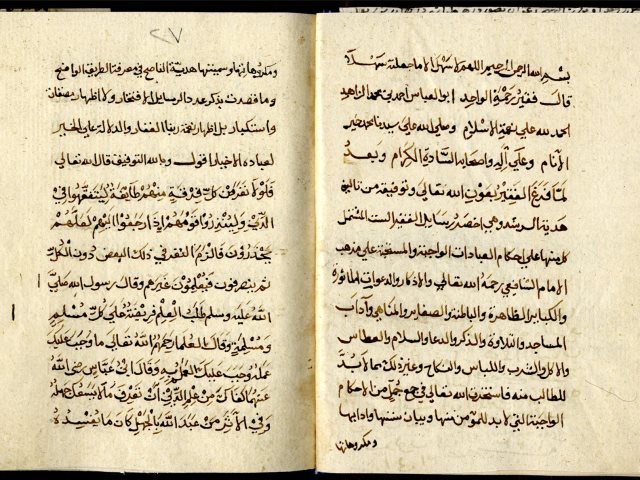 بسم الله الرحمن الرحيم اللهم لا سهل الا ما جعلته سهلا
قال فقير رحمة الواحد ابو العباس احمد بن محمد الزاهد
الحمد لله على نعمة الاسلام وصلى الله على سيدنا محمد خير
الانام وعلى اله واصحابه السادة الكرام وبعد
لما فرغ الفقير بعون الله تعالى وتوفيقه من تاليف
هدية وهي اخصر رسايل الفقير الست المشتمل
كل منها على احكام العبادات الواجبة والمستحبة على مذهب
الامام الشافعي رحمه الله تعالى والاذكار والدعوات الماثورة
والكباير الظاهرة والباطنة والصغاير والمناهي وآداب
المساجد والتلاوة والذكر والدعا والسلام والعطاس
والاكل والشرب واللباس والنكاح وغير ذلك مما لا بد
للطالب منه فاستخرت الله تعالى في جمع جمل من الاحكام
الواجبة التي لا بد للمؤمن منها وبيان سننها وادابها
ومكروهاتها
٢٧
ومكروهاتها وسميتها هدية الناصح في معرفة الطريقة الواضح
وما قصدت بذكر عدد الرسايل الافتخار ولا اظهار صفات
واستكبار بل اظهار نعمة ربنا الغفار والدلالة على الخير
لعباده الاخيار فاقول وبالله التوفيق قال الله تعالى
فلولا نفر من كل فرقة منهم طايفة ليتفقهوا في
الدين ولينذروا قومهم اذا رجعوا اليهم لعلهم
يحذرون فالزم التفقه في ذلك البعض دون الكل
ثم ينصرفون فيعلمون غيرهم وقال رسول الله صلى
الله عليه وسلم طلب العلم فريضة على كل مسلم
ومسلمة وقال العلما رحمهم الله تعالى ما وجب عليك
عمله وجب عليك العلم به وقال ابن عباس رضي الله
عنهما كفاك من علم الدين ان تعرف ما لا يسعك جهله
وفي الاثر من عبد الله بالجهل كان ما يفسده